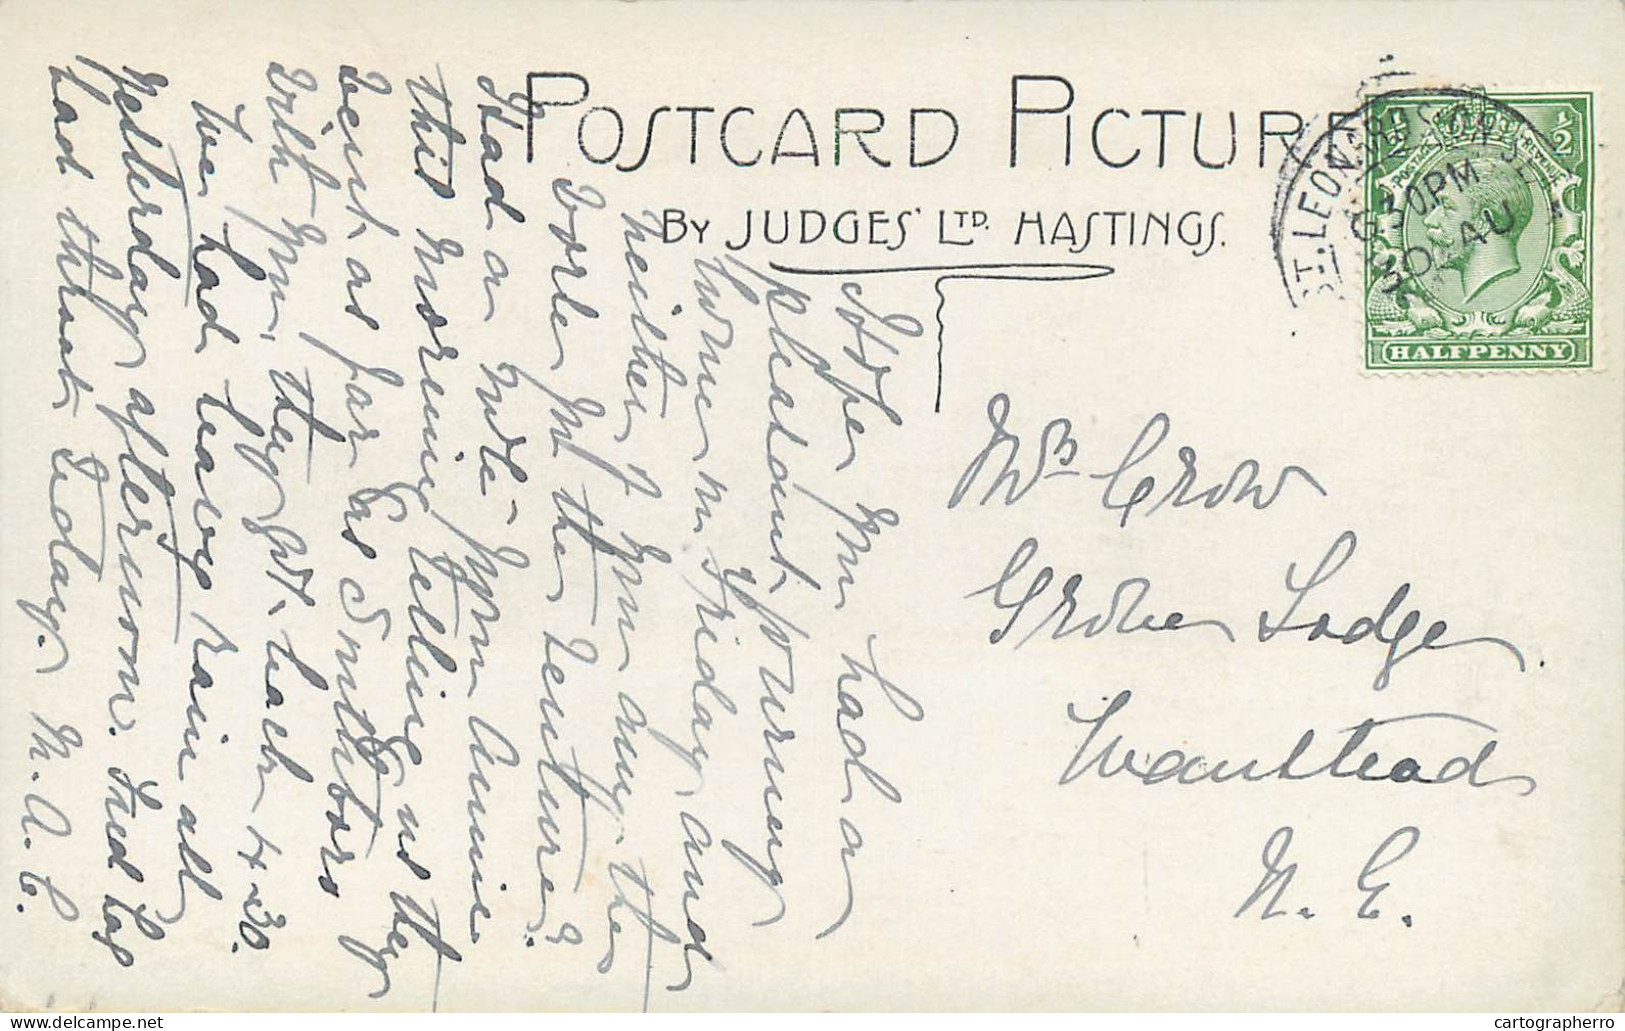 POSTCARD PICTURE
BY JUDGES' LTD. HASTINGS.
ST. LEONARDS-ON-S
30 PM
30 AU
POSTAGE
REVENUE
½
HALFPENNY
Mrs Crow
Grove Lodge
Wanstead
N. E.
I hope you had a
pleasant journey
home on Friday and
neither of you any the
worse for the venture.
Had a note from Annie
this morning telling us they
went as far as
with you, they got back 4.30.
We had heavy rain all
yesterday afternoon. Fred has
bad throat today. M. A. C.
cartographerro